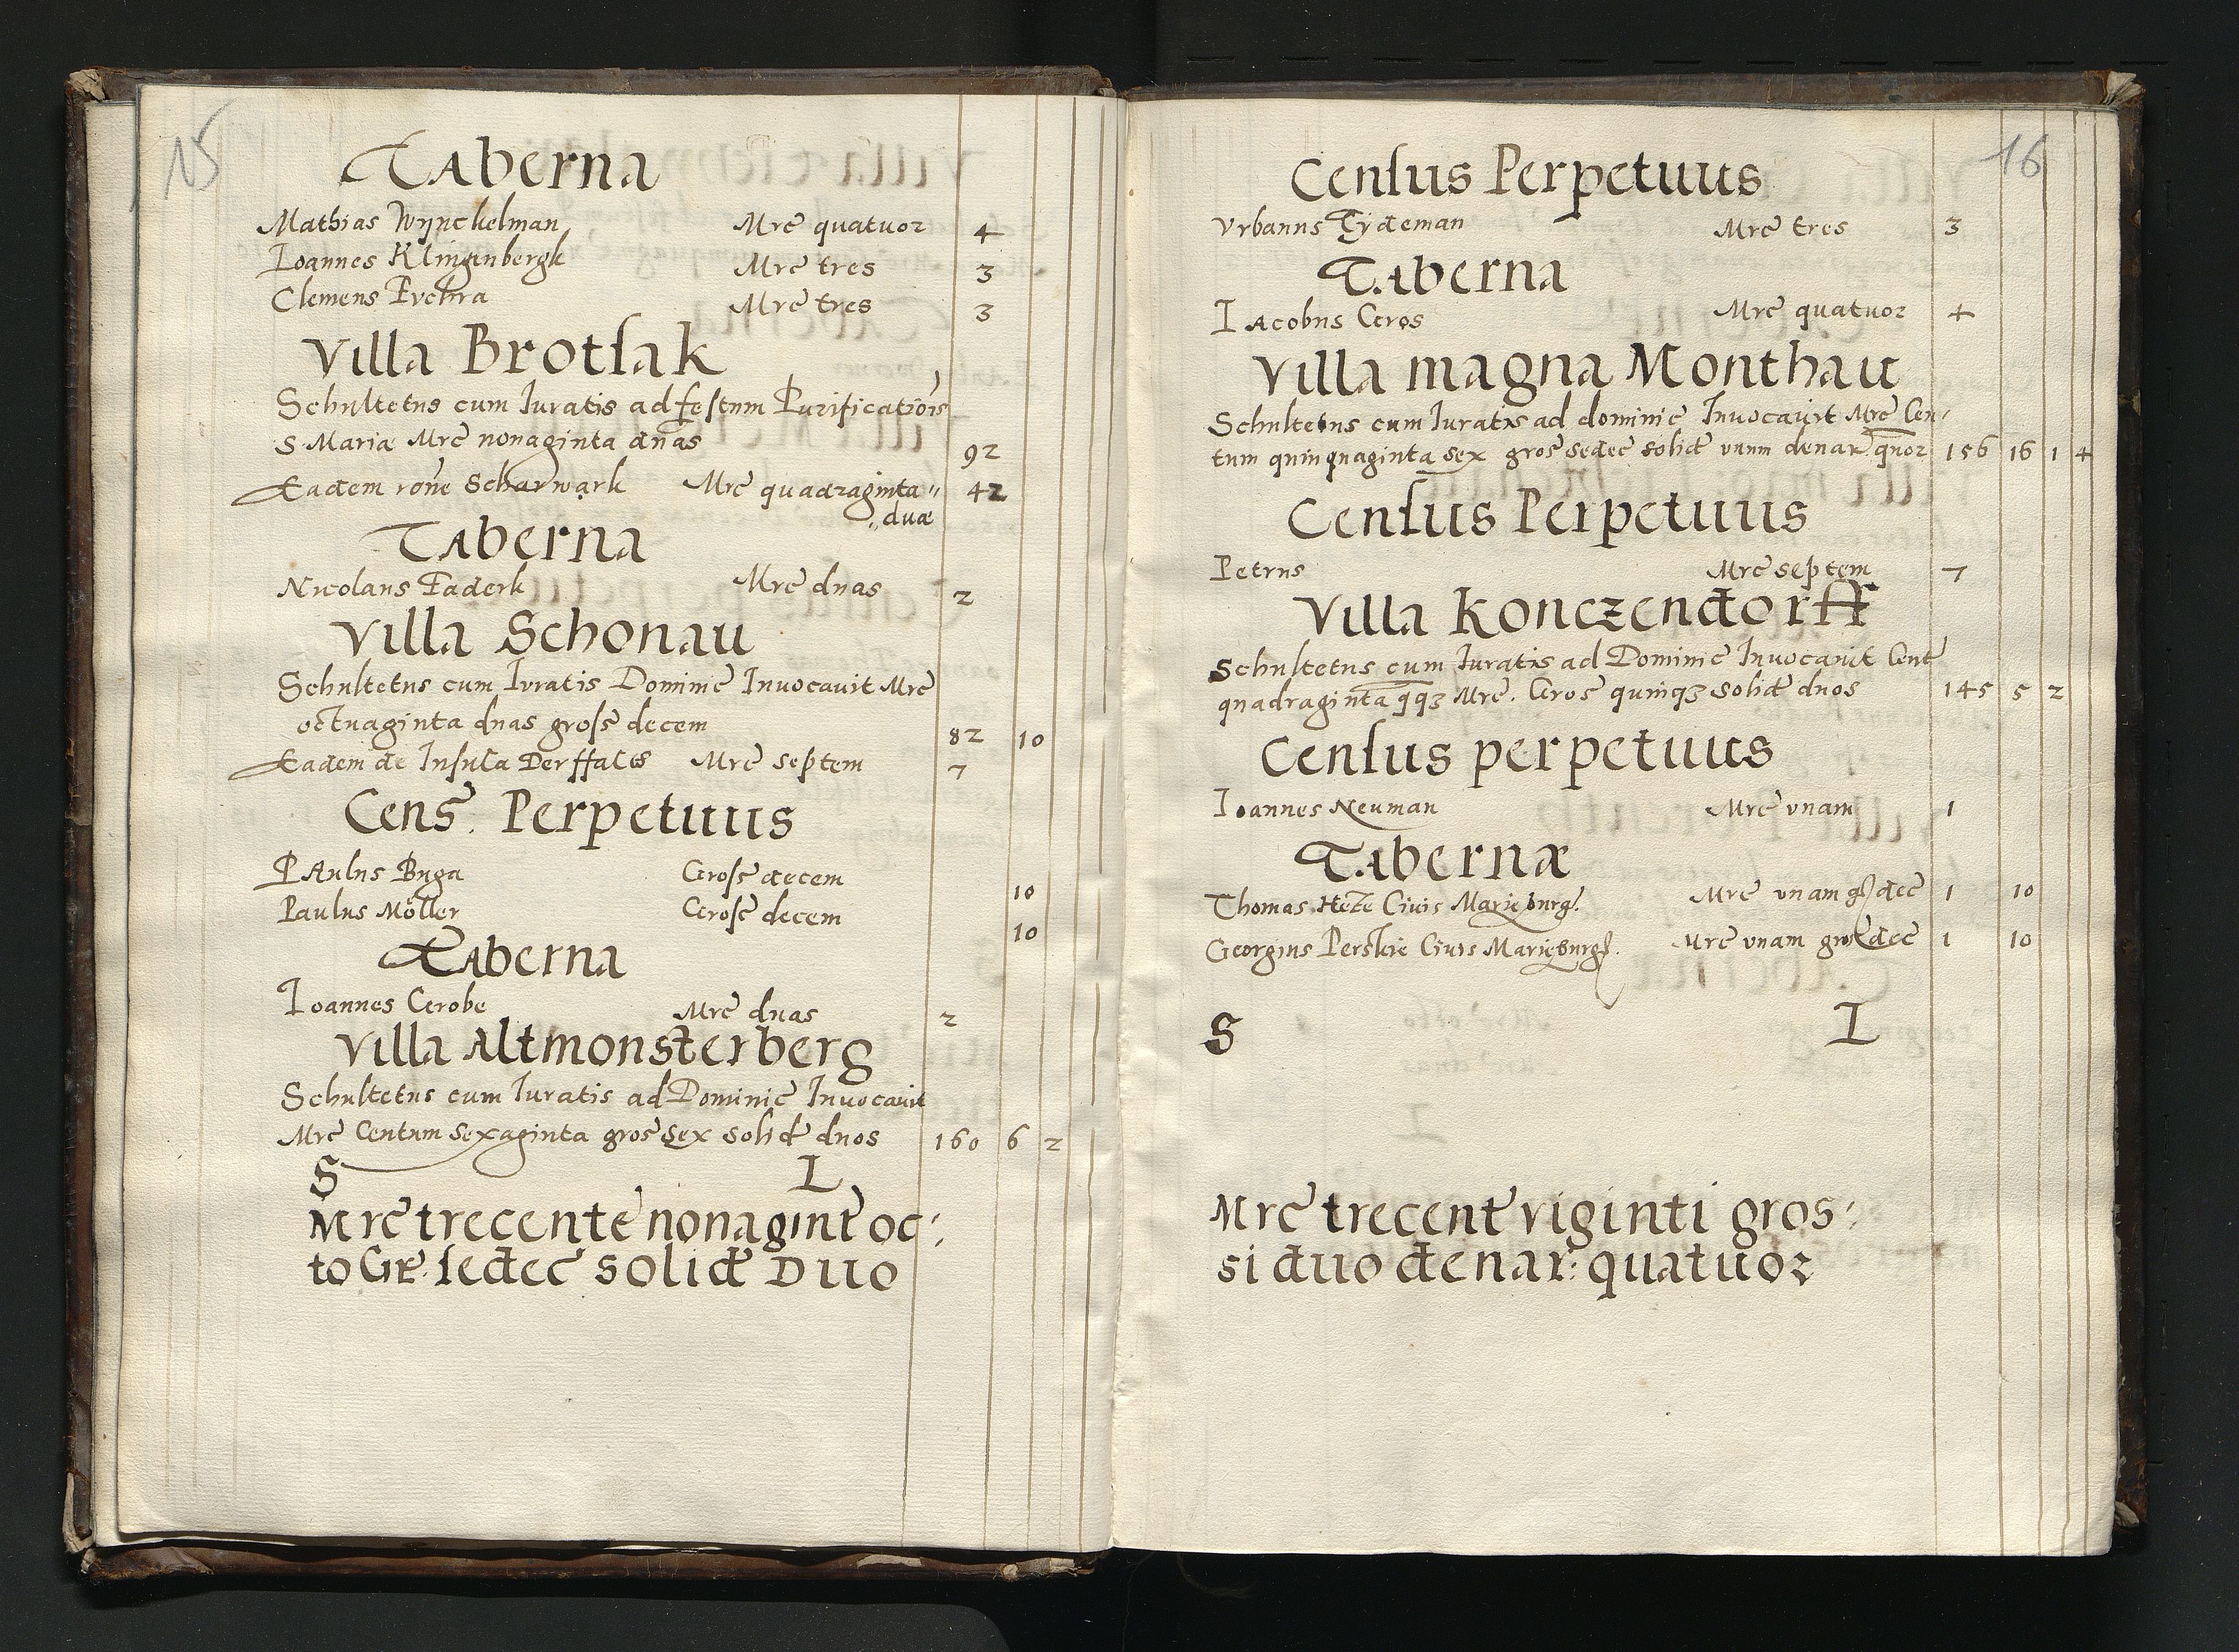 15
Taberna
Mathias Wynckelman Mrc quatuor 4
Ioannes Klingenbergk Mrc tres 3
Clemens Mrc tres 3
Villa Brotsak
Schultetus cum Iuratis ad festum Purificatiois
S Mariæ Mrc nonaginta duas 92
Eadem rone Scharwark Mrc quadraginta„
„duæ 42
Taberna
Nicolaus Faderk Mrc duas 2
Villa Schonau
Schultetus cum Iuratis Dominic Inuocauit Mrc
octuaginta duas gross decem 82 10
Eadem de Insula Mrc septem 7
Cens. Perpetuus
Paulus Buga Gross decem 10
Paulus Möller Gross decem 10
Taberna
Ioannes Grobe Mrc duas 2
Villa Altmonsterberg
Schultetus cum Iuratis ad Dominic Inuocauit
Mrc Centum sexaginta gros sex solid duos 160 6 2
S L
Mrc trecente nonagint oc:
to Gr. sedec solid Duo
16
Census Perpetuus
Vrbanus Tydeman Mrc tres 3
Taberna
Iacobus Gros Mrc quatuor 4
Villa magna Monthau
Schultetus cum Iuratis ad dominic Inuocauit Mrc Cen:
tum quinquaginta sex gros sedec solid vnum denar quor 156 16 1 4
Census Perpetuus
Petrus Mrc septem 7
Villa Konczendorff
Schultetus cum Iuratis ad Dominic Inuocauit Cent
quadraginta qqꝫ Mrc. Gros quinqꝫ solid duos 145 5 2
Census perpetuus
Ioannes Neuman Mrc vnam 1
Tabernæ
Thomas Ciuis Marieburg. Mrc vnam gs dec 1 10
Georgius Perskie Ciuis Marieburg. Mrc vnam gros dec 1 10
S I
Mrc trecent viginti gros:
si duo denar: quatuor